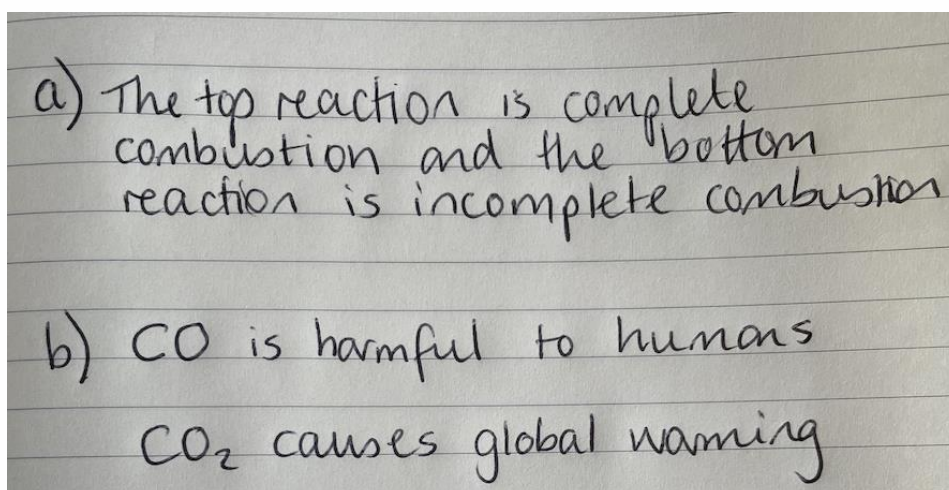 a) The top reaction is complete
combustion and the bottom
reaction is incomplete combustion
b) CO is harmful to humans
CO₂ causes global warming